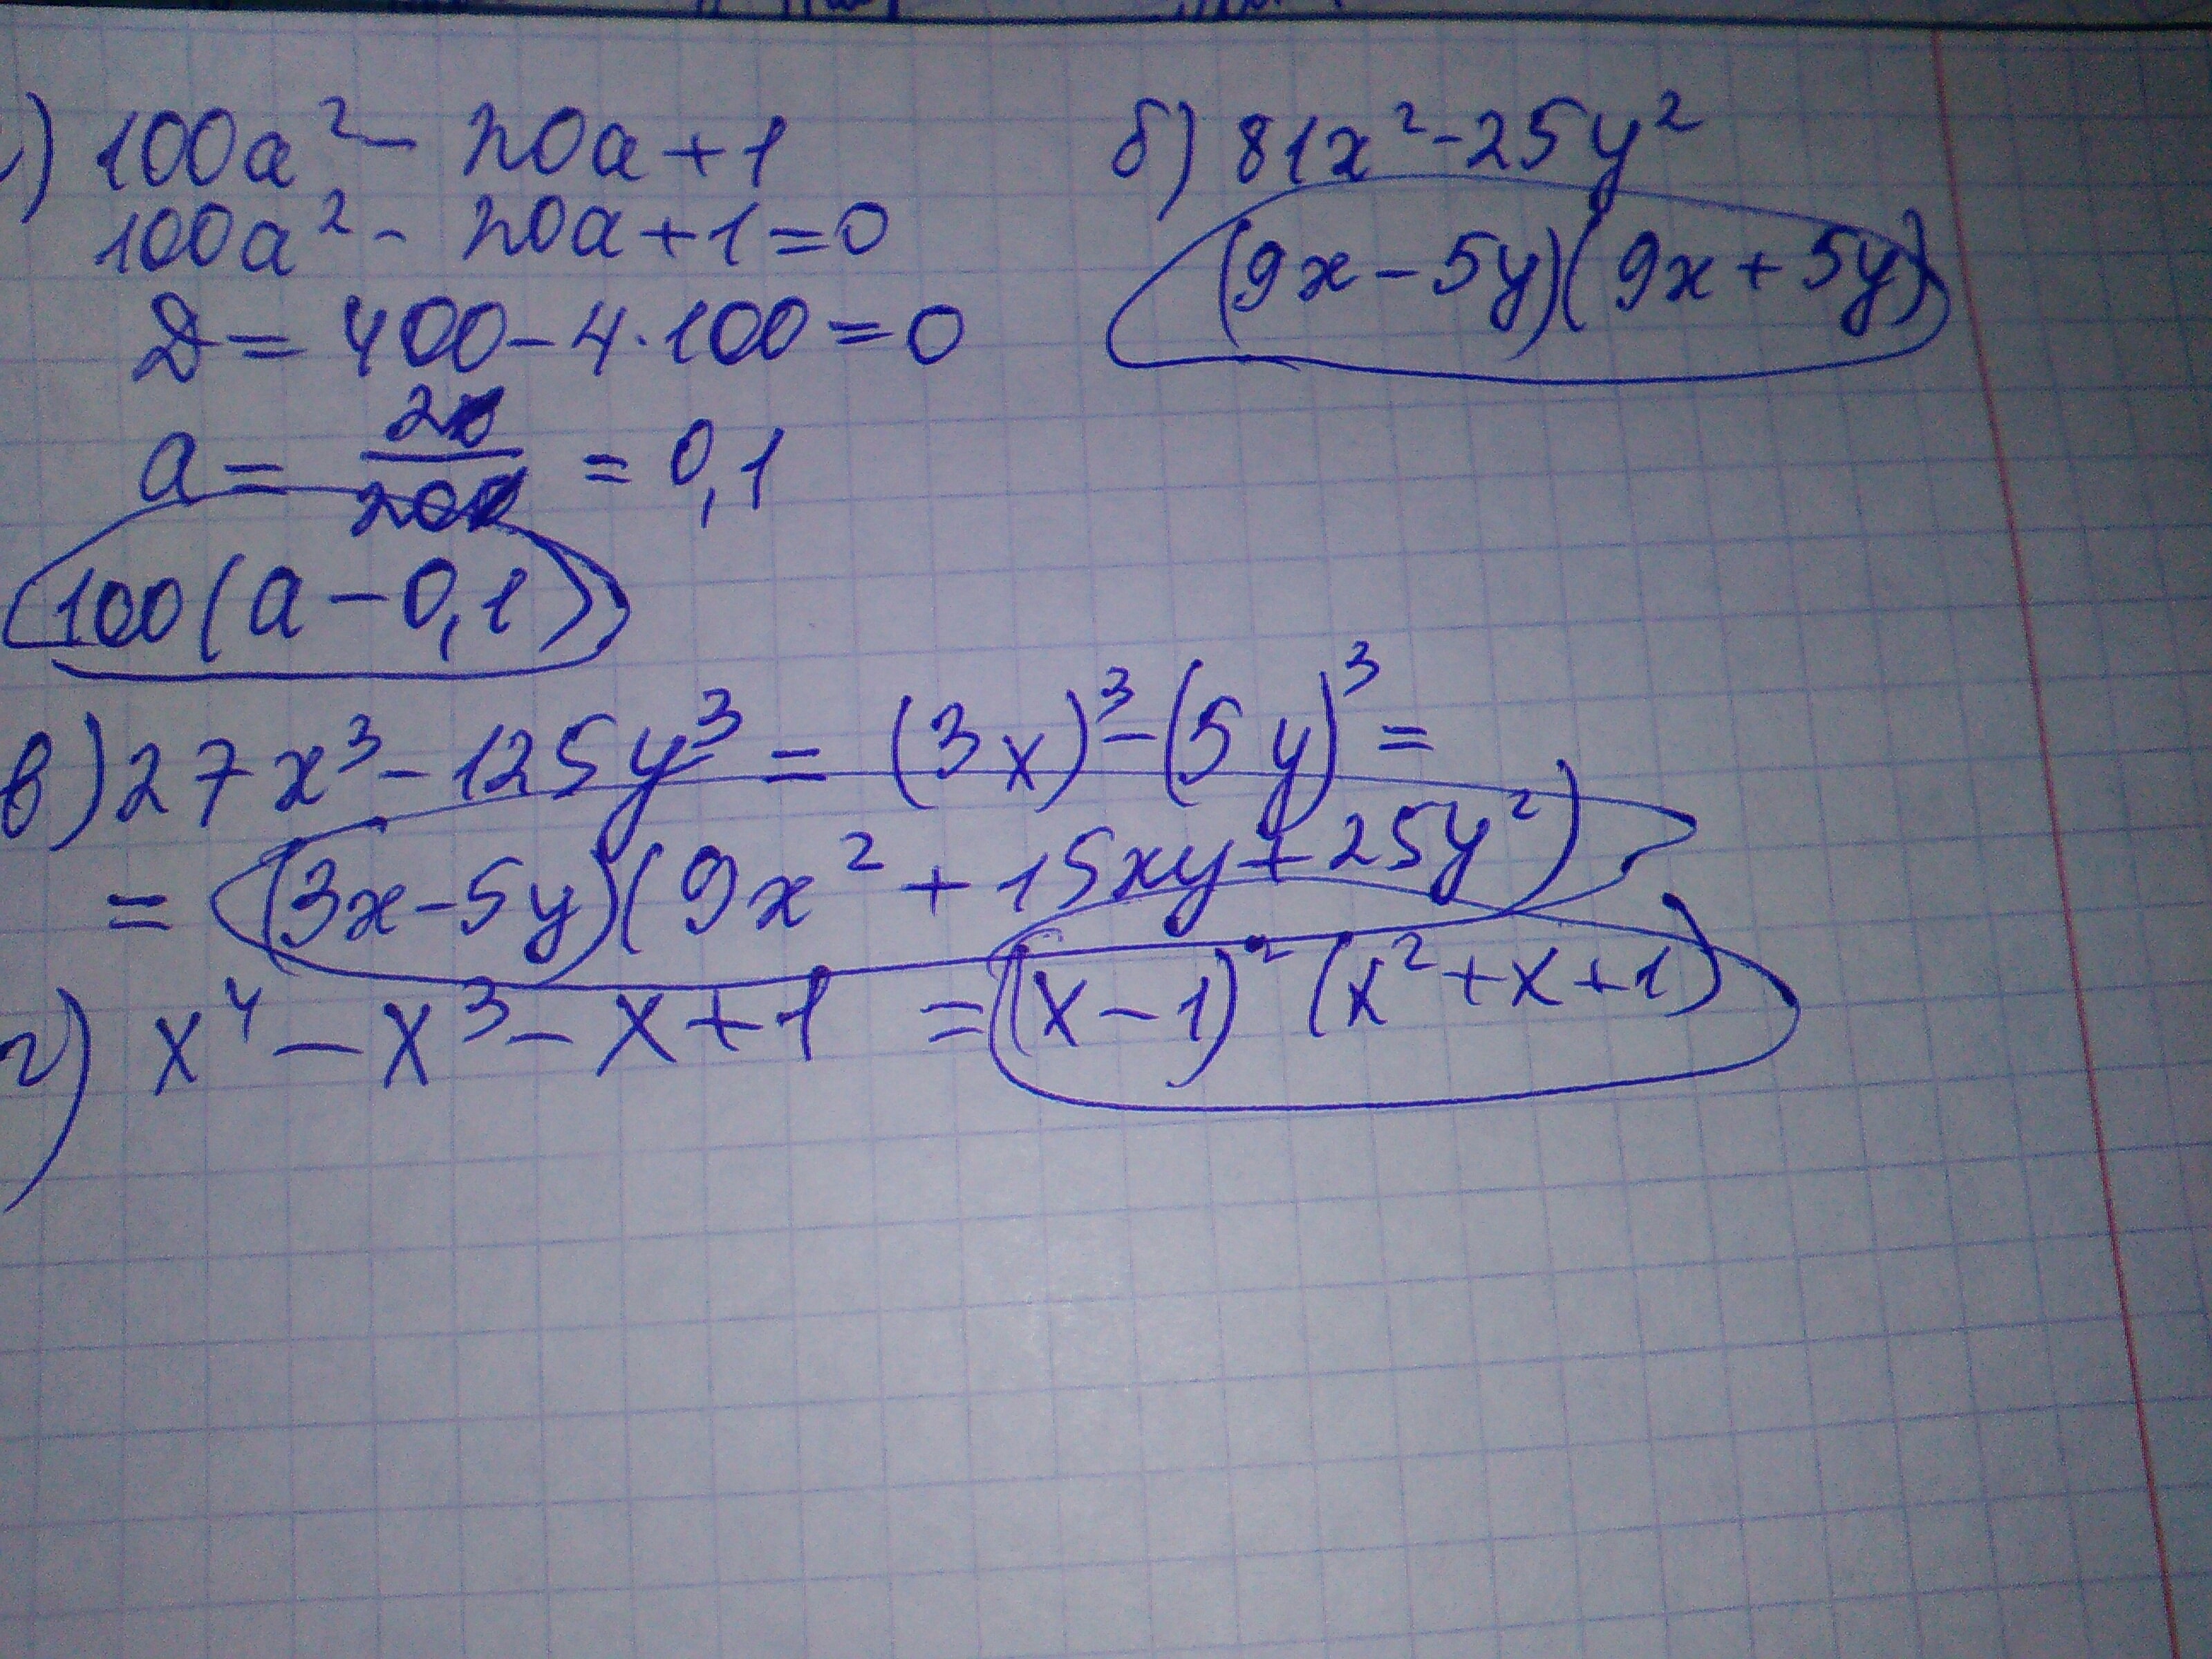 ) 100a² - 20a + 1
100a² - 20a + 1 = 0
D = 400 - 4·100 = 0
a = 20/200 = 0,1
100(a - 0,1)
б) 81x² - 25y²
(9x - 5y)(9x + 5y)
в) 27x³ - 125y³ = (3x)³ - (5y)³ =
= (3x - 5y)(9x² + 15xy + 25y²)
г) x⁴ - x³ - x + 1 = (x - 1)² (x² + x + 1)